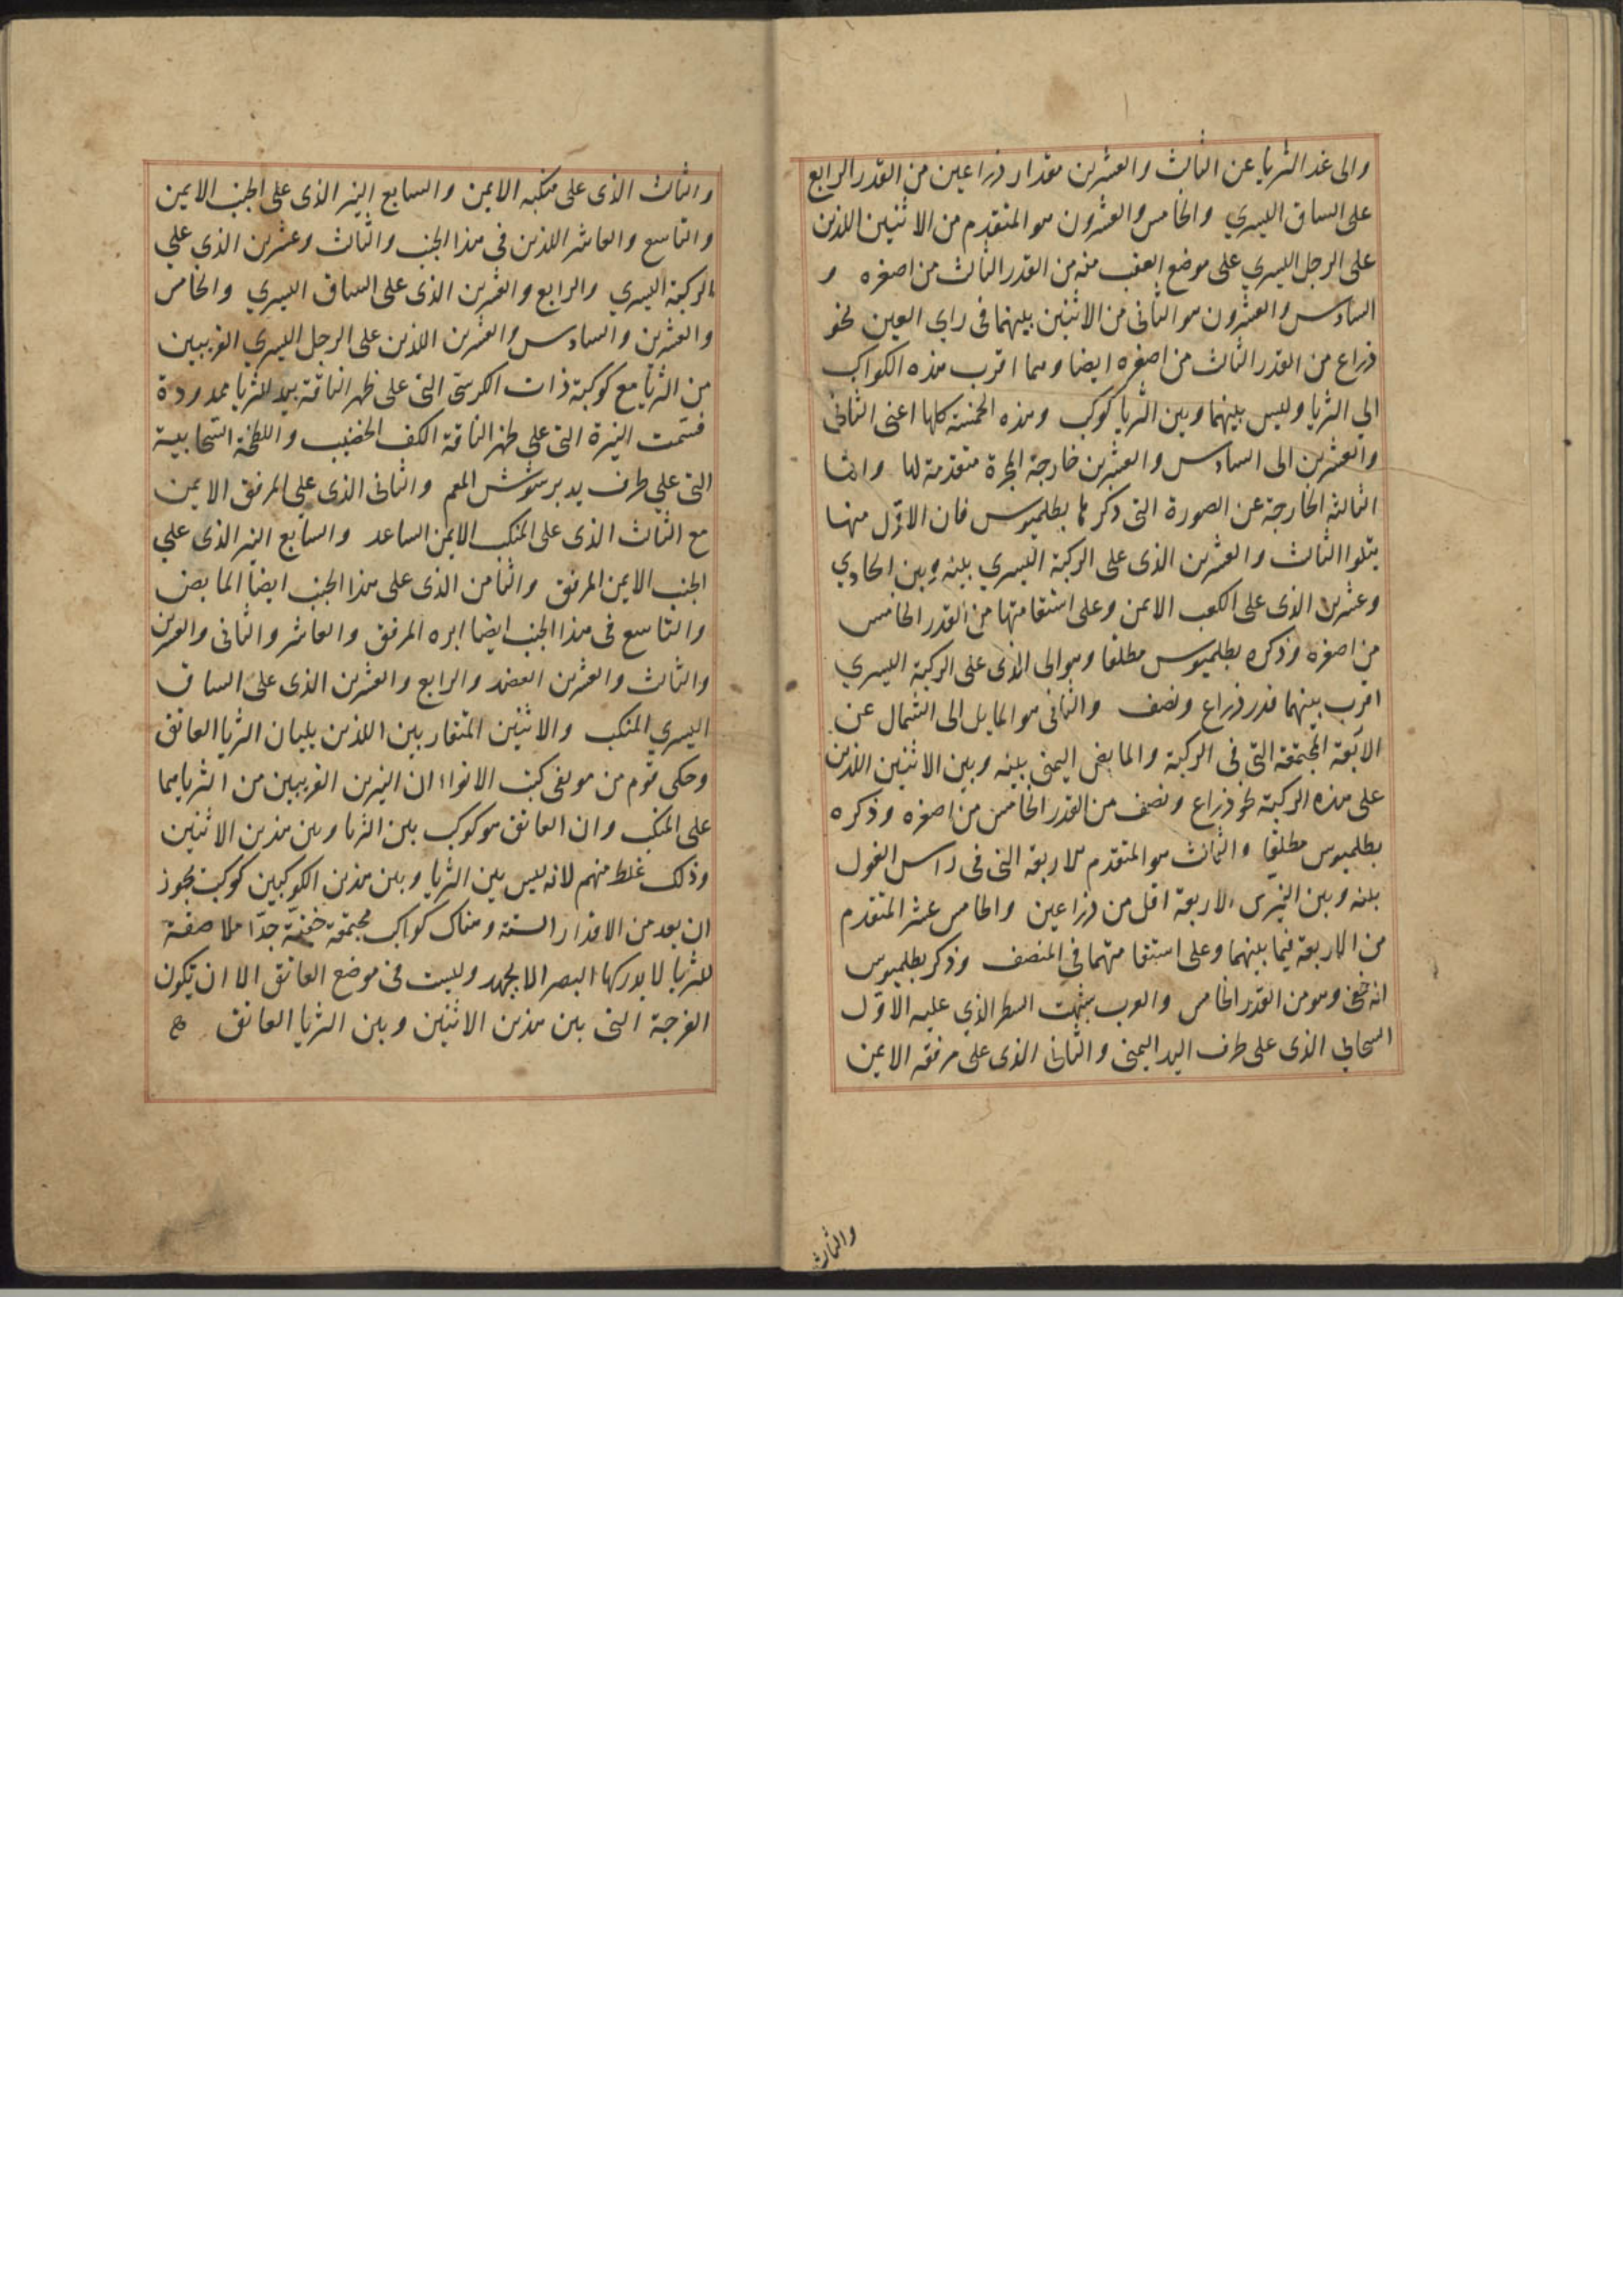 والى غد الثريا عن الثالث والعشرين مقدار ذراعين من القدر الرابع
على الساق اليسري والخامس والعشرون هو المتقدم من الاثنين اللذين
على الرجل اليسري على موضع العقب منه من القدر الثالث من اصغره و
السادس والعشرون هو الثانى من الاثنين بينهما فى راى العين نحو
ذراع من القدر الثالث من اصغره ايضا وهما اقرب هذه الكواكب
الي الثريا وليس بينهما وبين الثريا كوكب وهذه الخمسة كلها اعنى الثانى
والعشرين الى السادس والعشرين خارجة المجرة متقدمة لها واما
الثالثة الخارجة عن الصورة التى ذكرها بطلميوس فان الاول منها
يتلوا الثالث والعشرين الذى على الركبة اليسري بينه وبين الحادي
وعشرين الذى على الكعب الايمن وعلى استقامتها من القدر الخامس
من اصغره وذكره بطلميوس مطلقا وهو الى الذى على الركبة اليسري
اقرب بينهما قدر ذراع ونصف والثانى هو المايل الى الشمال عن
الاربعة المجتمعة التى فى الركبة والمابض اليمنى بينه وبين الاثنين اللذين
على هذه الركبة نحو ذراع ونصف من القدر الخامس من اصغره وذكره
بطلميوس مطلقا والثالث هو المتقدم للاربعة التى فى راس الغول
بينه وبين النيرين الاربعة اقل من ذراعين والخامس عشر المتقدم
من الاربعة فيما بينهما وعلى استقامتهما فى المنصف وذكر بطلميوس
انه خفى وهو من القدر الخامس والعرب شبهت السطر الذي عليه الاول
السحابى الذى على طرف اليد اليمنى والثانى الذى على مرفقه الايمن
والثالث
والثالث الذى على منكبه الايمن والسابع النير الذى على الجنب الايمن
والتاسع والعاشر اللذين فى هذا الجنب والثالث وعشرين الذي علي
الركبة اليسري والرابع والعشرين الذى على الساق اليسري والخامس
والعشرين والسادس والعشرين اللذين على الرجل اليسري القريبين
من الثريا مع كوكبة ذات الكرسى التى على ظهر الناقة بيد للثريا ممدودة
فسمت النيرة التى على ظهر الناقة الكف الخضيب واللطخة السحابية
التى علي طرف يد برشوش المعصم والثانى الذى علي المرفق الايمن
مع الثالث الذى على المنكب الايمن الساعد والسابع النير الذى علي
الجنب الايمن المرفق والثامن الذى على هذا الجنب ايضا المابض
والتاسع فى هذا الجنب ايضا ابره المرفق والعاشر والثانى والعشرين
والثالث والعشرين العضد والرابع والعشرين الذى على الساق
اليسري المنكب والاثنين المتقاربين اللذين يليان الثريا العاتق
وحكى قوم من مولفى كتب الانواء ان النيرين القريبين من الثريا هما
على المنكب وان العاتق هو كوكب بين الثريا وبين هذين الاثنين
وذلك غلط منهم لانه ليس بين الثريا وبين هذين الكوكبين كوكب يجوز
ان يعد من الاقدار الستة وهناك كواكب مجتمعة خفية جدا ملاصقة
للثريا لا يدركها البصر الا بجهد وليست فى موضع العاتق الا ان تكون
الفرجة التى بين هذين الاثنين وبين الثريا العاتق